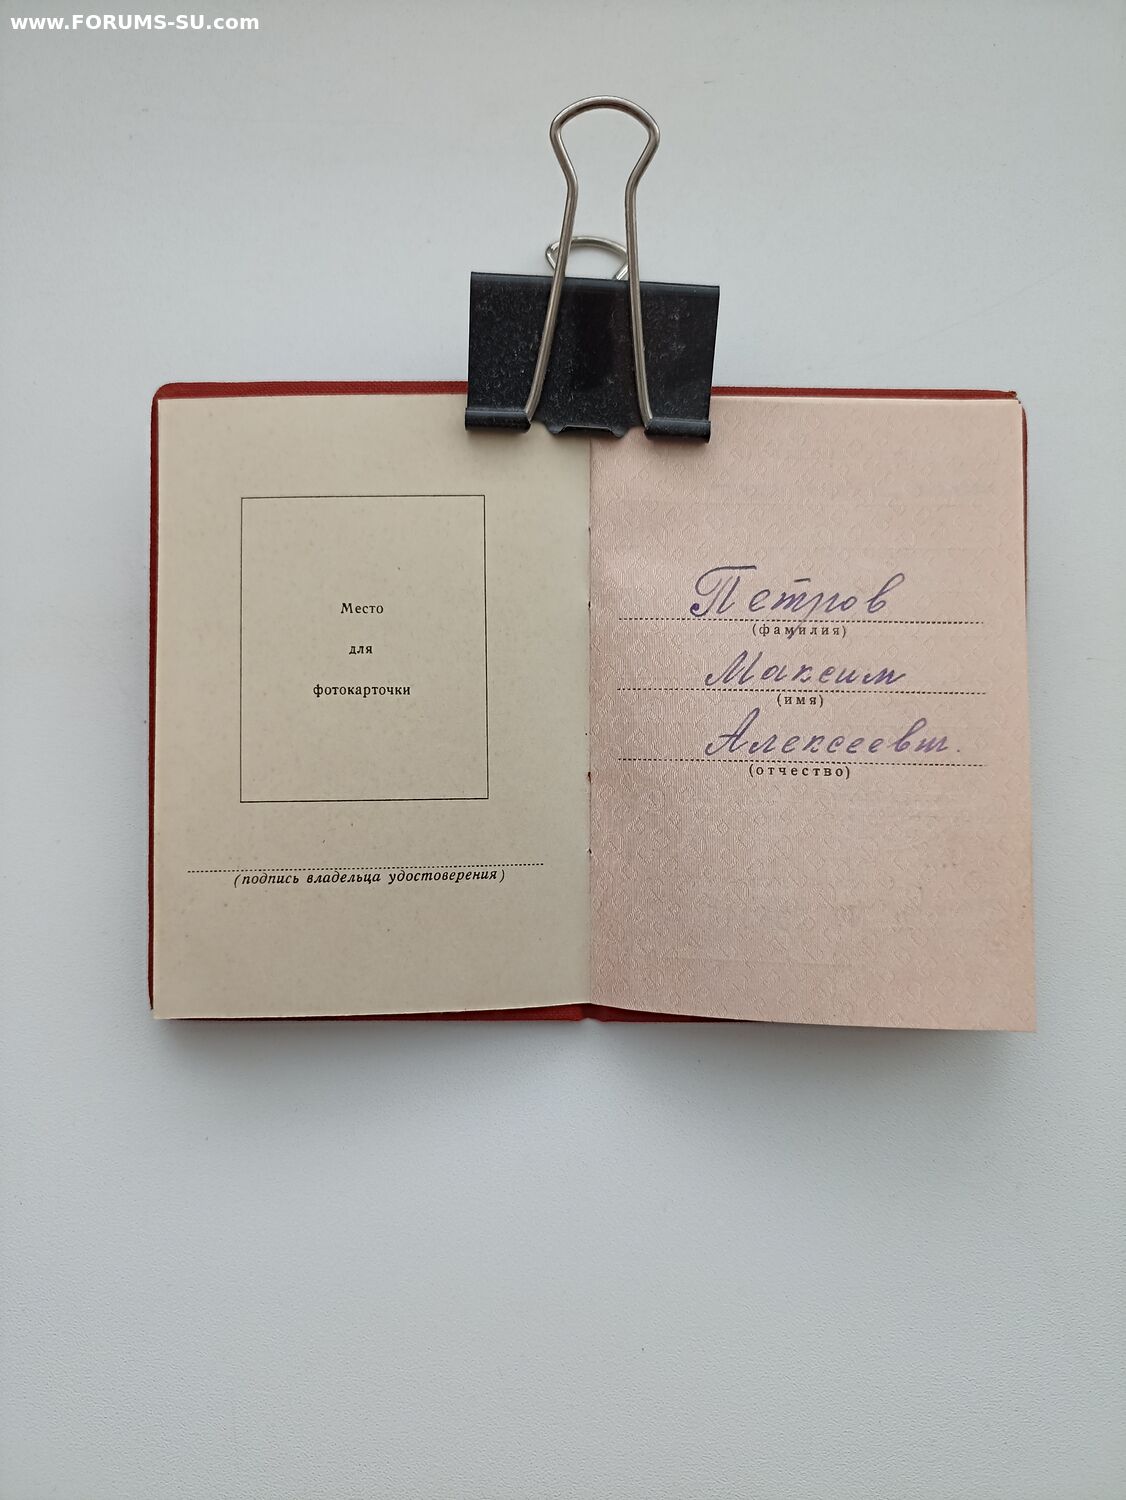 www.FORUMS-SU.com
Место
для
фотокарточки
(подпись владельца удостоверения)
Петров
(фамилия)
Максим
(имя)
Алексеевич.
(отчество)